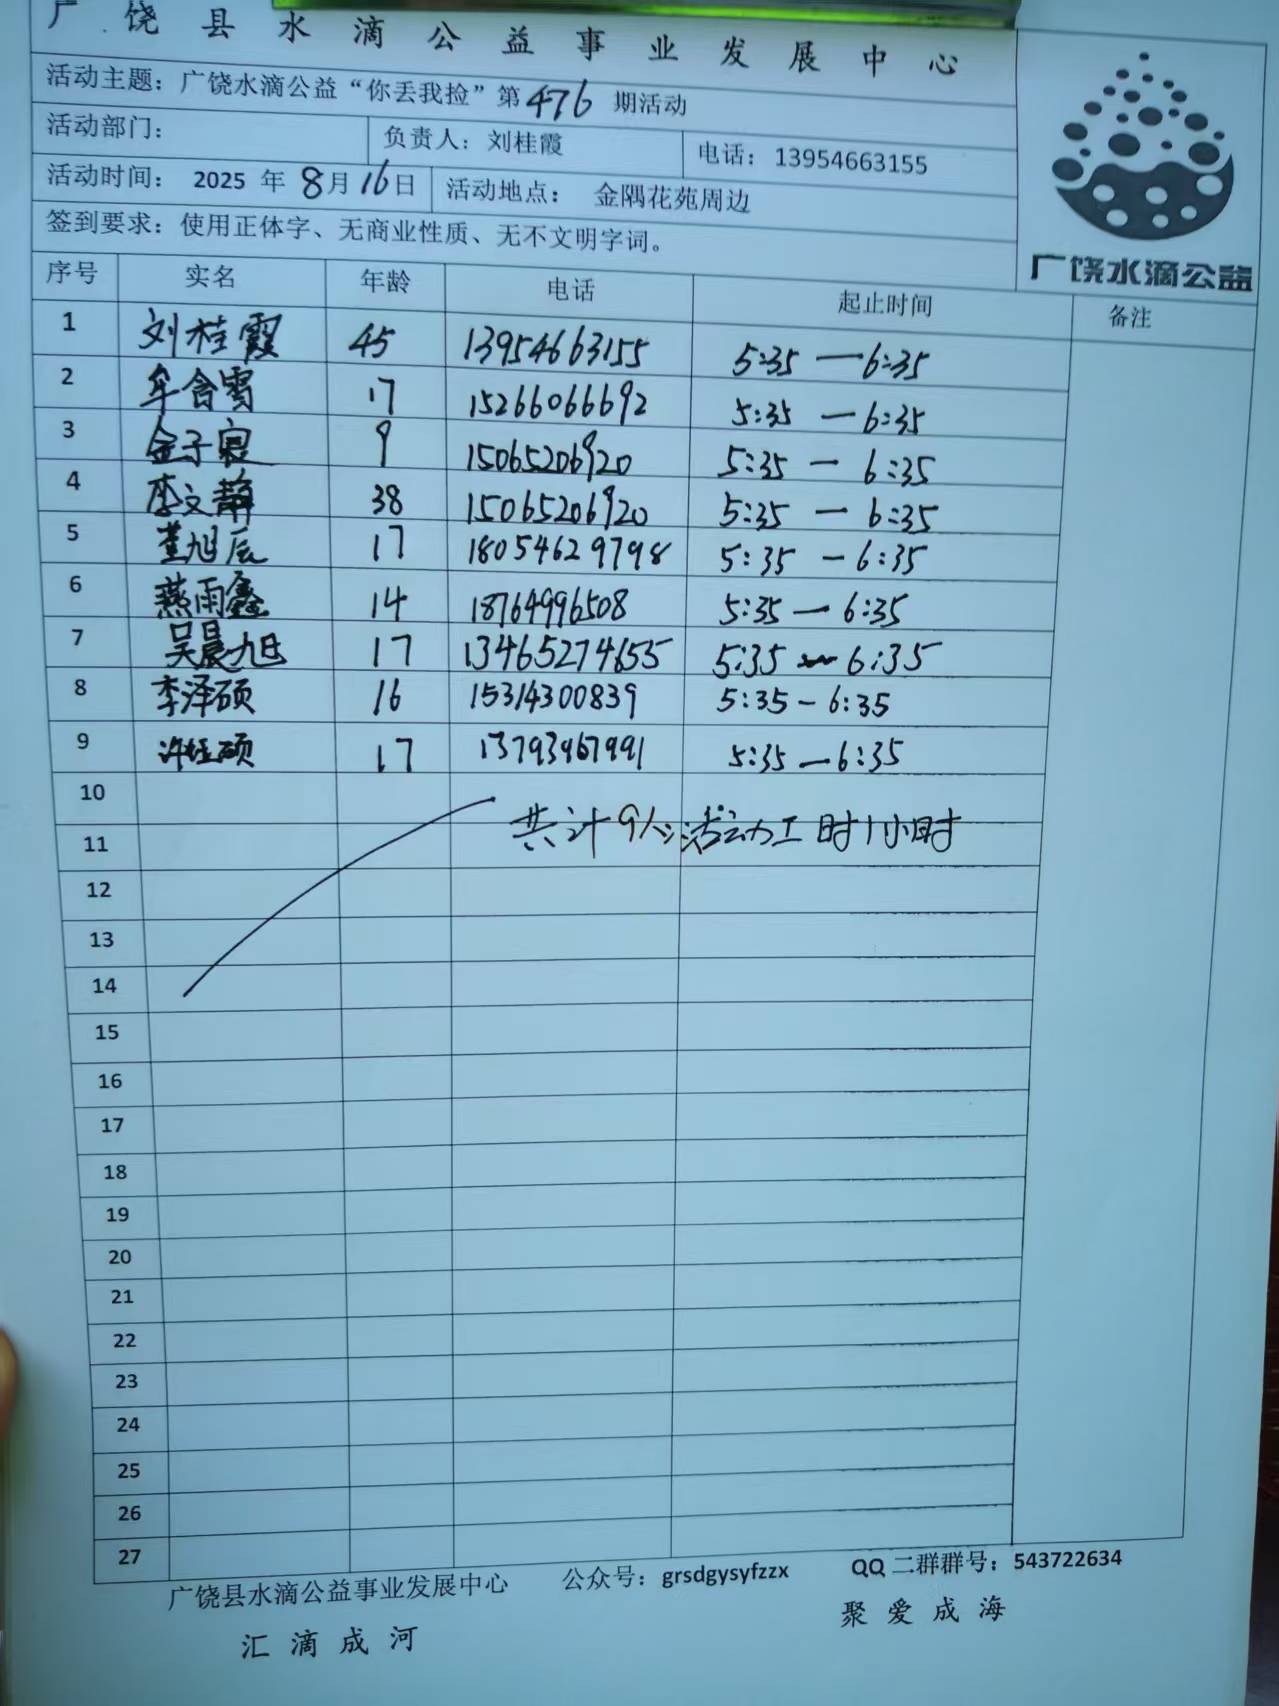 广饶县水滴公益事业发展中心
活动主题：广饶水滴公益“你丢我捡”第476期活动
活动部门： 负责人：刘桂霞 电话：13954663155
活动时间： 2025 年 8月16日 活动地点： 金隅花苑周边
签到要求：使用正体字、无商业性质、无不文明字词。
广饶水滴公益
序号 实名 年龄 电话 起止时间 备注
1 刘桂霞 45 13954663155 5:35 — 6:35
2 牟含雪 17 15266066692 5:35 — 6:35
3 金子宸 9 15065206920 5:35 — 6:35
4 李文静 38 15065206920 5:35 — 6:35
5 董旭辰 17 18054629798 5:35 — 6:35
6 燕雨鑫 14 18764996508 5:35 — 6:35
7 吴晨旭 17 13465274655 5:35 — 6:35
8 李泽硕 16 15314300839 5:35 — 6:35
9 许硕 17 13793967991 5:35 — 6:35
10
共计9人，活动工时1小时
11
12
13
14
15
16
17
18
19
20
21
22
23
24
25
26
27
广饶县水滴公益事业发展中心 公众号：grsdgysyfzzx QQ 二群群号：543722634
汇滴成河 聚爱成海